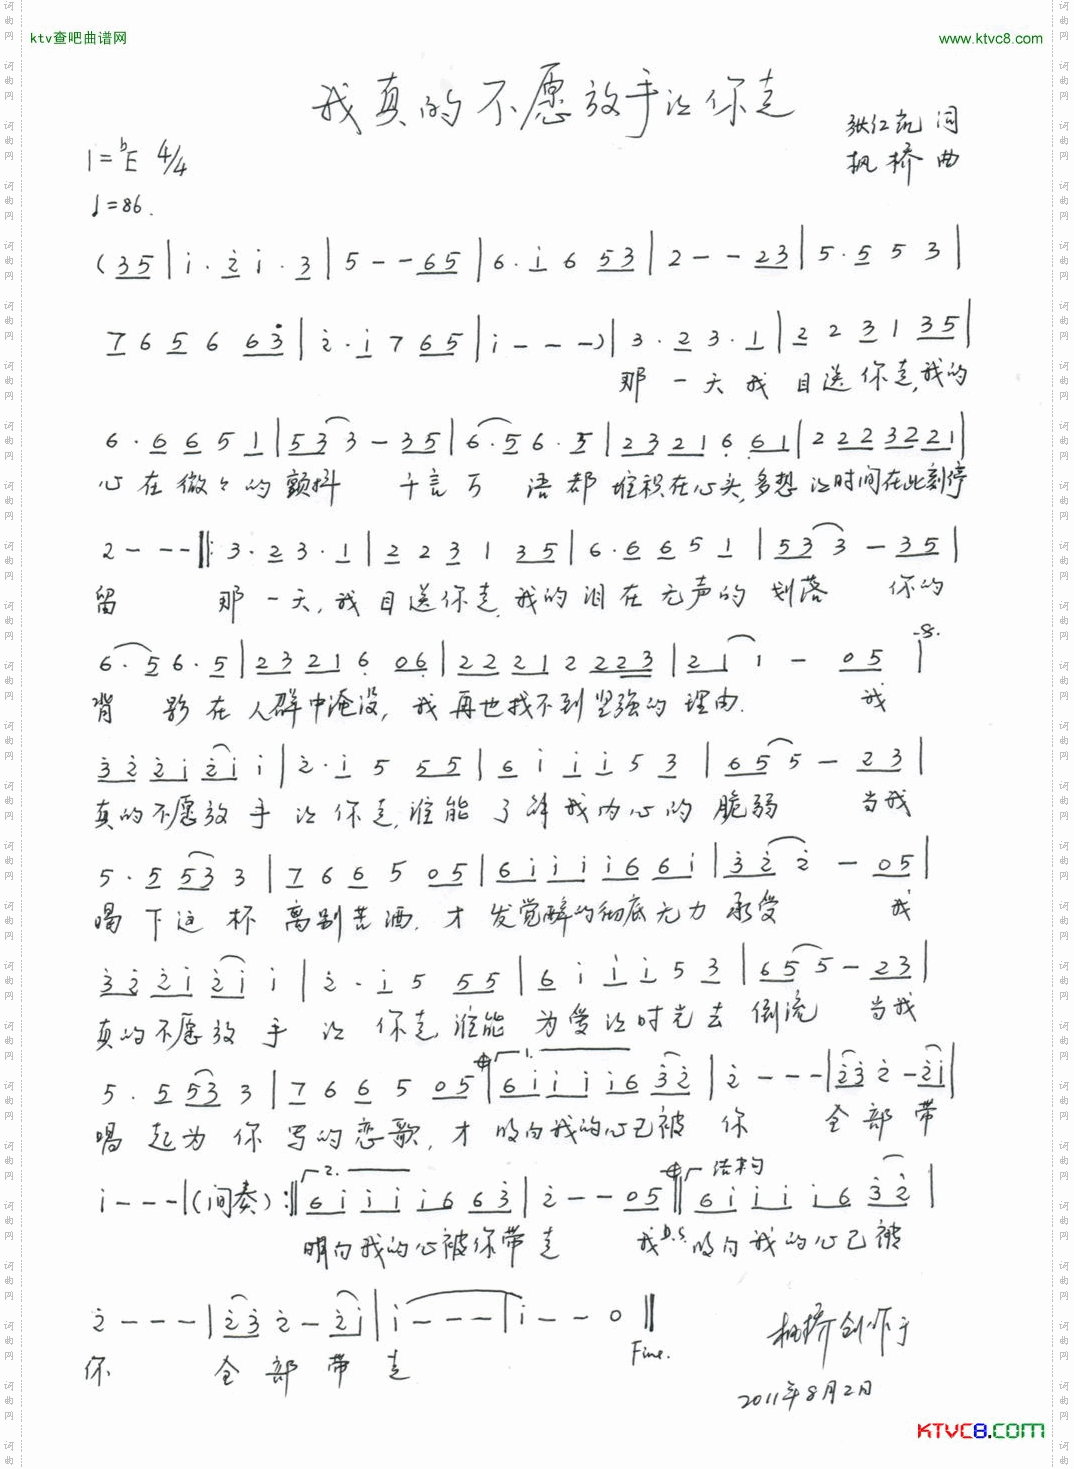 ktv查吧曲谱网
www.ktvc8.com
我真的不愿放手让你走
张红凯 词
枫桥 曲
1=bE 4/4
♩=86.
(35|i·2i·3|5--65|6·i653|2--23|5·553|
765663|2·i765|i---)|3·23·1|2231 35|
那一天我目送你走,我的
6·6651|533-35|6·56·5|2321661|22232221|
心在微々的颤抖 千言万语都堆积在心头,多想让时间在此刻停
2---‖:3·23·1|223135|6·6651|533-35|
留 那一天,我目送你走,我的泪在无声的划落 你的
6·56·5|2321606|22212223|211-05|
背影在人群中淹没,我再也找不到坚强的理由. 我
322i2ii|2·i555|6iii53|655-23|
真的不愿放手让你走,谁能了解我内心的脆弱 当我
5·5533|766505|6iiii66i|322-05|
喝下这杯离别苦酒,才发觉醉的彻底无力承受 我
322i2ii|2·i555|6iii53|655-23|
真的不愿放手让你走谁能为爱让时光去倒流 当我
5·5533|766505|1.6iiii632|2---|232-2i|
喝起为你写的恋歌,才明白我的心已被你 全部带
i---|(间奏):‖2.6iiii663|2--05‖结构6iiii632|
明白我的心被你带走 我D.S.明白我的心已被
2---|232-2i|i---|i--0‖
你 全部带走
Fine.
枫桥创作于
2011年8月2日
KTVC8.COM